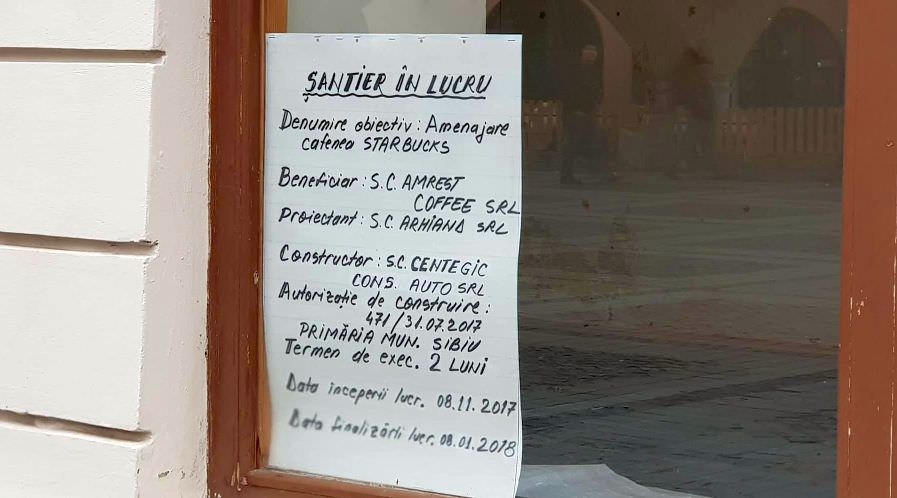 ȘANTIER ÎN LUCRU
Denumire obiectiv : Amenajare
cafenea STARBUCKS
Beneficiar : S.C. AMREST
COFFEE SRL
Proiectant : S.C. ARHIAND SRL
Constructor : S.C. CENTEGIC
CONS. AUTO SRL
Autorizație de construire :
471/31.07.2017
PRIMĂRIA MUN. SIBIU
Termen de exec. 2 LUNI
Data începerii lucr. 08.11.2017
Data finalizării lucr. 08.01.2018